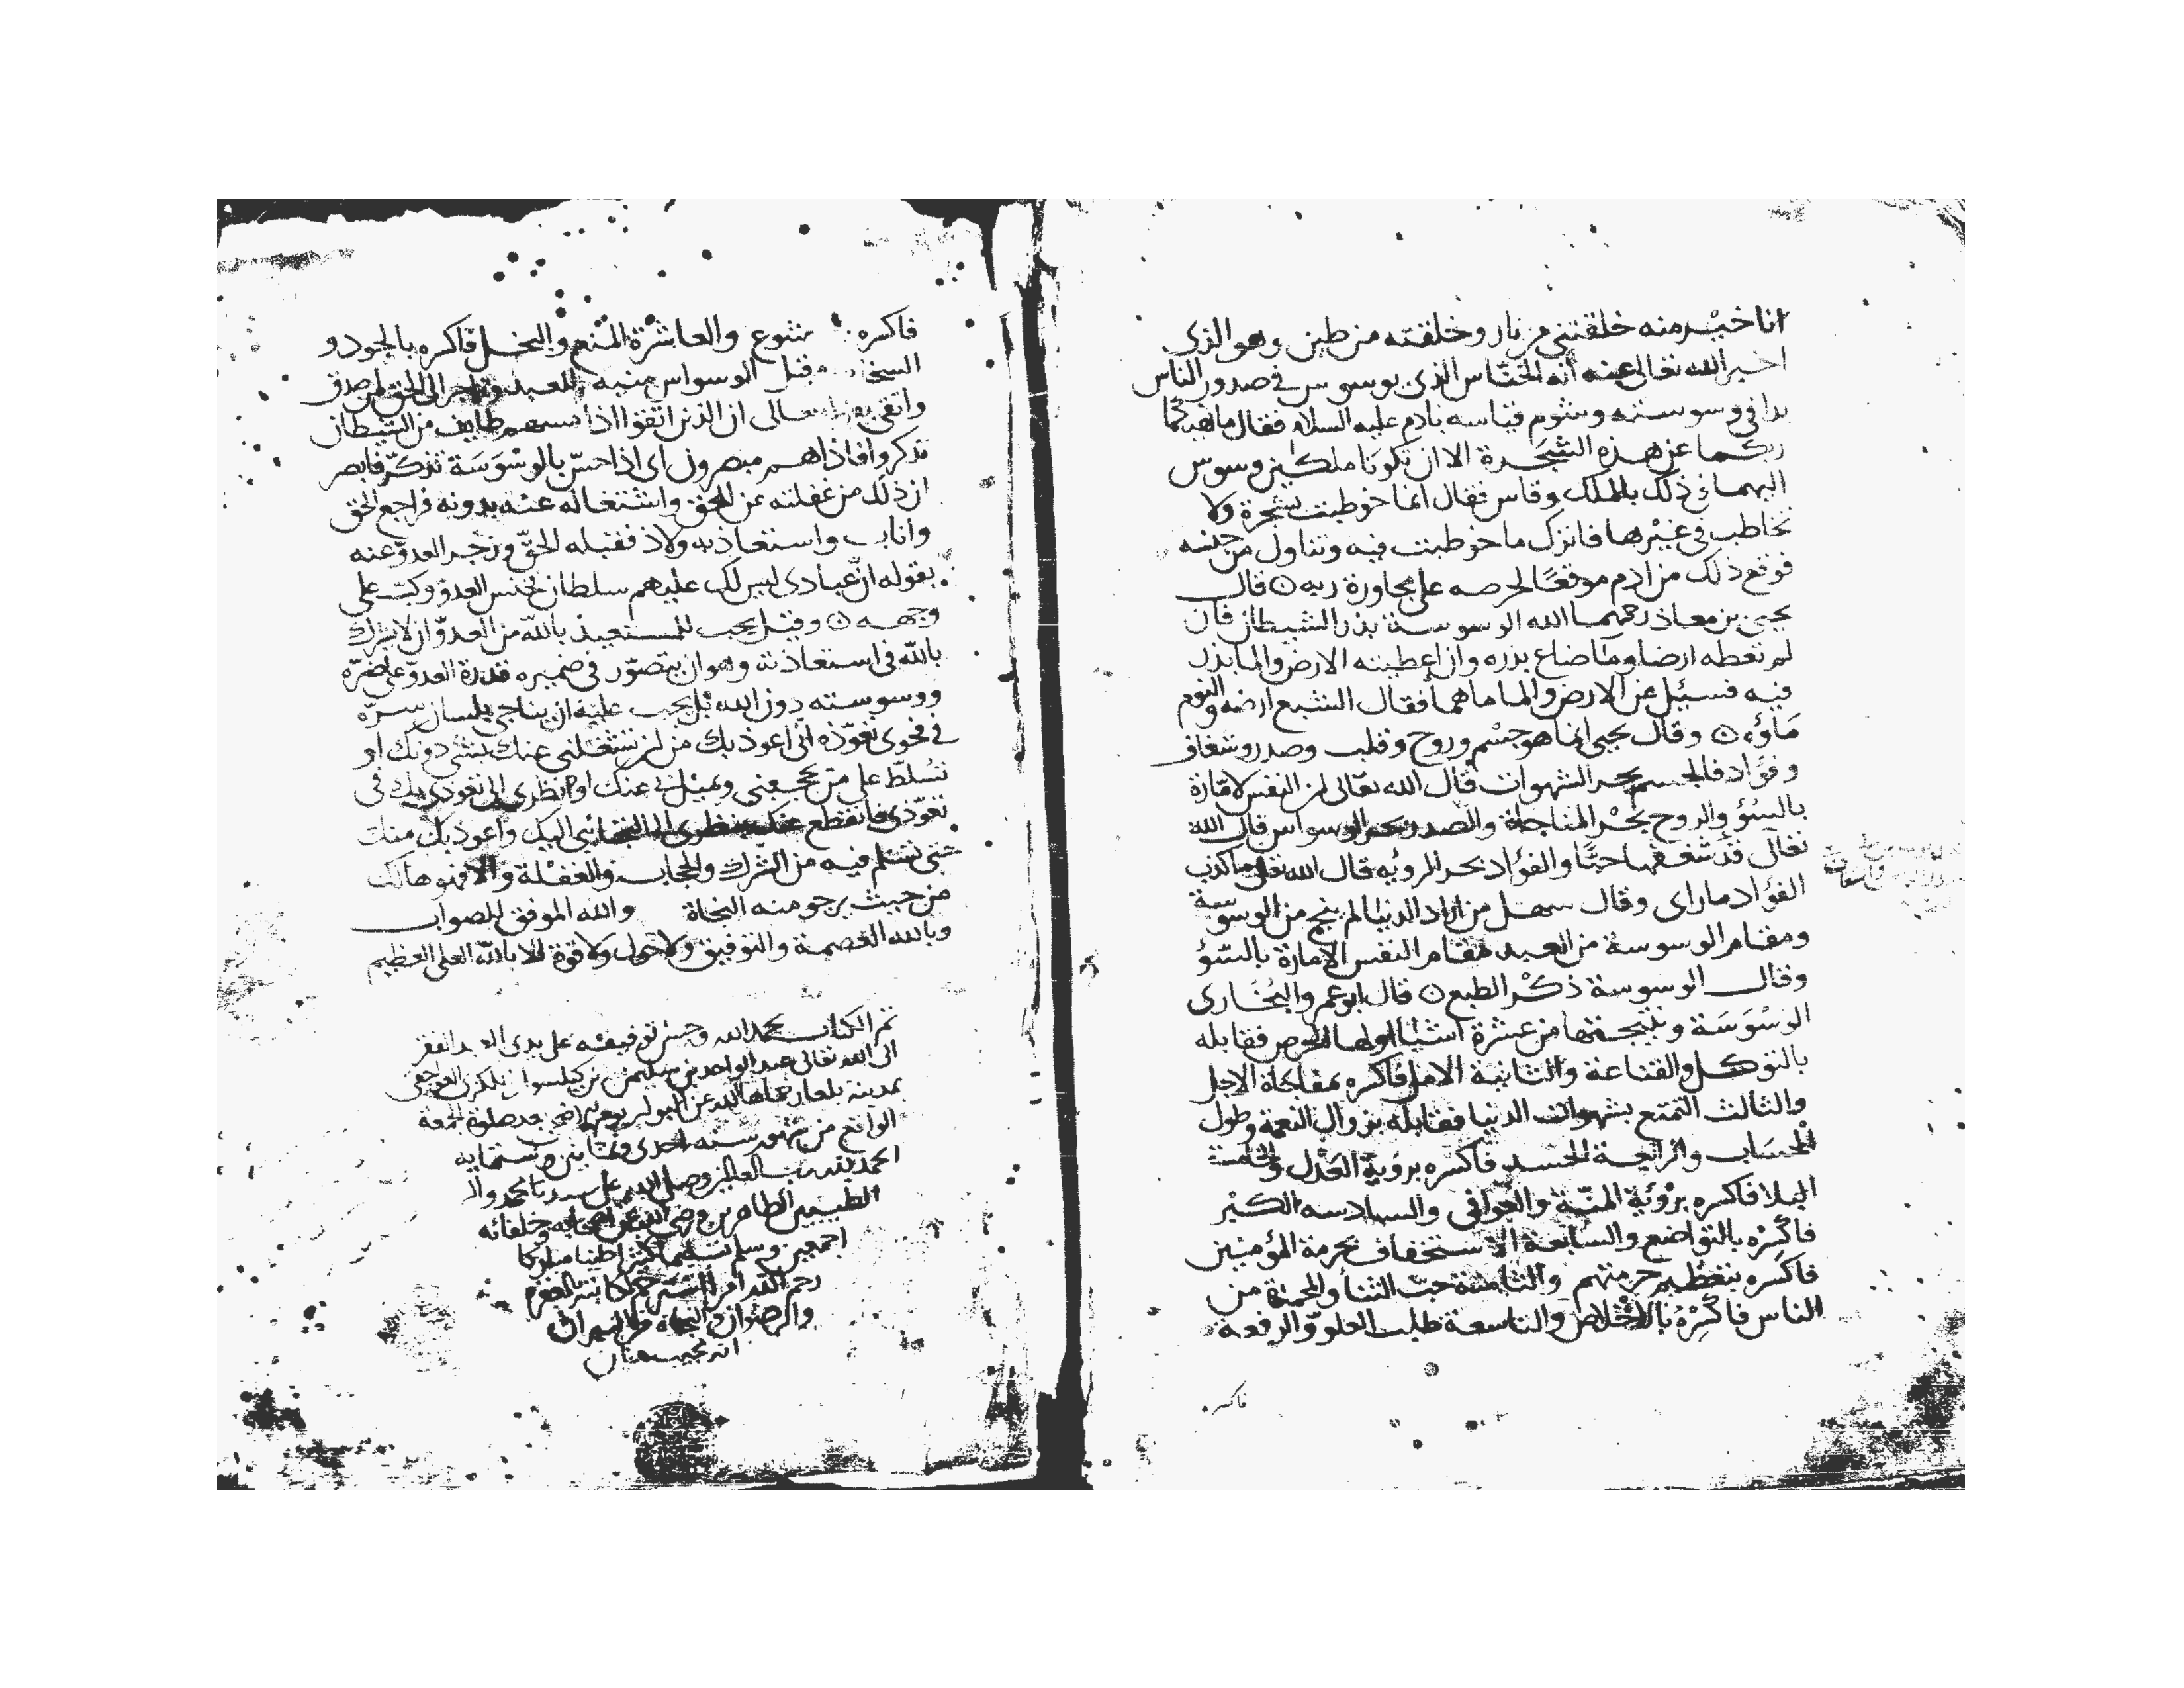 انا خير منه خلقتني من نار وخلقته من طين وهو الذي
اخبر الله تعالى عنه أنه الخناس الذي يوسوس في صدور الناس
بدا في وسوسته وشوم قياسه بادم عليه السلام فقال ما نهيكما
ربكما عن هذه الشجرة الا ان تكونا ملكين وسوس
اليهما في ذلك بالملك وقاس فقال انما خوطبت بشجرة ولا
تخاطب في غيرها فاترك ما خوطبت فيه وتناول من جنسه
فوقع ذلك من ادم موقعا لحرصه على مجاورة ربه ۞ قال
يحيى بن معاذ رحمهما الله الوسوسة بذر الشيطان فان
لم تعطه ارضا وما ضاع بذره وان اعطيته الارض والما بذر
فيه فسئل عن الارض والما ما هما فقال الشبع ارضه والنوم
ماؤه ۞ وقال يحيى انما هو جسم وروح وقلب وصدر وشغاف
وفؤاد فالجسم بحر الشهوات قال الله تعالى ان النفس لامّارة
بالسوء والروح بحر المناجاة والصدر بحر الوسواس قال الله
تعالى قد شغفها حبّا والفؤاد بحر الرؤيه قال الله تعالى ما كذب
الفؤاد ما راى وقال سهل من اراد الدنيا لم ينج من الوسوسة
ومقام الوسوسة من العبد مقام النفس الامارة بالسّوء
وقال الوسوسة ذكر الطبع ۞ قال ابو عمرو البخارى
الوسوسة ونتيجتها من عشرة اشيا اولها الحرص فقابله
بالتوكل والقناعة والثانية الامل فاكسره بمفاجاة الاجل
والثالث التمتع بشهوات الدنيا فقابله بزوال النعمة وطول
الحساب والرابعة الحسد فاكسره برؤية العدل والخامسة
البلا فاكسره برؤية المنّة والعوافى والسادسه الكبر
فاكسره بالتواضع والسابعة الاستخفاف بحرمة المؤمنين
فاكسره بتعظيم حرمتهم والثامنة حبّ الثنا والمحمدة من
الناس فاكسره بالاخلاص والتاسعة طلب العلوّ والرفعة
فاكسره
فاكسره والعاشرة المنع والبخل فاكسره بالجود و
السخا وقيل الوسواس منبه للعبد الى الحق لمن صدق
واتقى تعالى ان الذين اتقوا اذا مسهم طايف من الشيطان
تذكروا فاذا هم مبصرون اى اذا احسّ بالوسوسة تذكّر فابصر
ان ذلك من غفلته عن الحق واشتغاله عنه بدونه فراجع الحق
واناب واستعاذ به ولاذ فقبله الحقّ وزجر العدوّ عنه
بقوله ان عبادى ليس لك عليهم سلطان فخنس العدو وكبّ على
وجهه ۞ وقيل يجب للمستعيذ بالله من العدوّ ان لا يشرك
بالله في استعاذته وهو ان يتصوّر في ضميره قدرة العدوّ على ضرّه
ووسوسته دون الله بل يجب عليه ان يناجي بلسان سرّه
في فحوى تعوّذه انّى اعوذ بك من ان تشغلنى عنك بشئ دونك او
تسلّط على من يحجبنى ويميل بى عنك او نظرى الى تعوذى بك فى
تعوّذى فانقطع اليك واعوذ بك منك
حتى تسلم فيه من الشرك والحجاب والغفلة والا فهو هالك
من حيث يرجو منه النجاة والله الموفق للصواب
وبالله العصمة والتوفيق ولا حول ولا قوة الا بالله العلى العظيم
تم الكتاب بحمد الله وحسن توفيقه على يدى العبد الفقير
الى الله تعالى عبد الواحد بن سليمن بن
بمدينة بعد صلوة الجمعة
الواقع من شهور سنه احدى وثمانين وستمايه
الحمد لله رب العالمين وصلى الله على سيدنا محمد واله
الطيبين الطاهرين ورضى الله عن اصحابه وخلفائه
اجمعين وسلم تسليما كثيرا طيبا مباركا
رحم الله
والرضوان والنجاة من النيران
انه مجيب منان